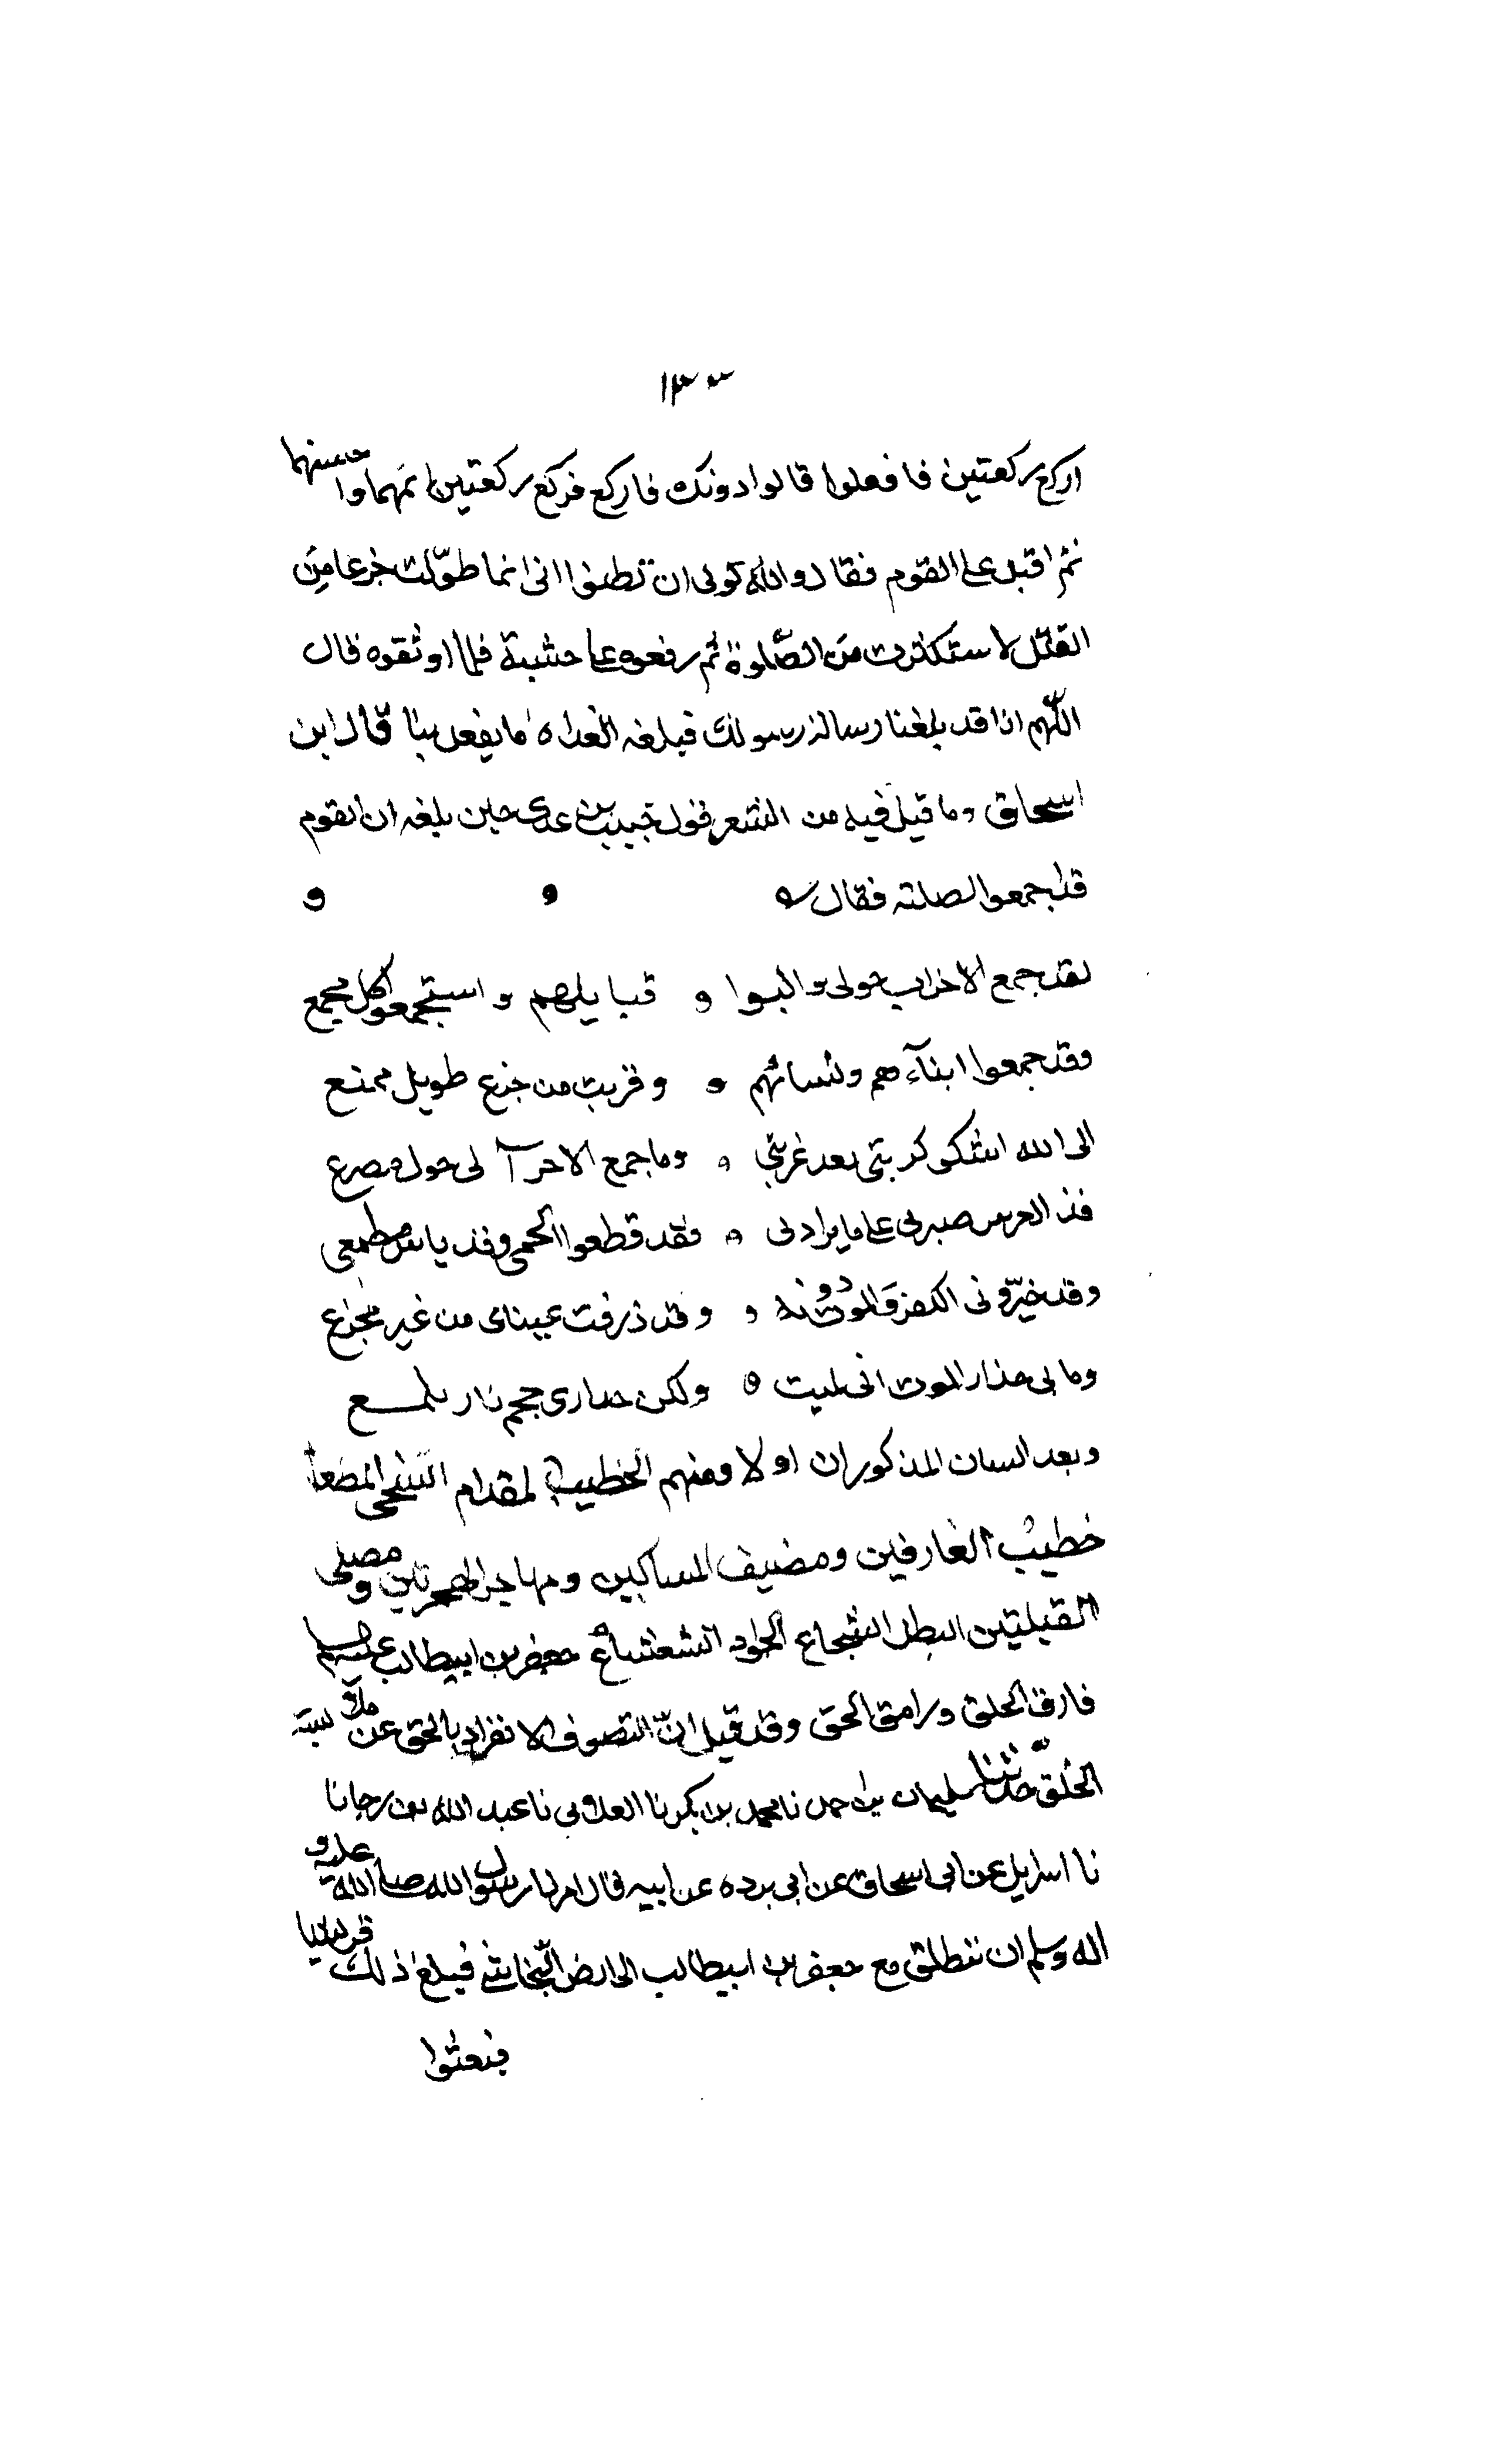 ١٣٣
اركع ركعتين فافعلوا قالوا دونك فاركع فركع ركعتين اتمهما واحسنهما
ثم اقبل على القوم فقال والله لولا ان تظنوا انى انما طولت جزعا من
القتل لاستكثرت من الصّلوة ثم رفعوه على خشبة فلما اوثقوه قال
اللّهم انا قد بلغنا رسالة رسولك فبلغه الغداة ما يفعل بنا قال ابن
اسحاق وما قيل فيه من الشعر قول خبيب بن عدى حين بلغه ان القوم
قد اجمعوا لصلبه فقال
لقد جمع الاحزاب حولى والبوا و قبايلهم و استجمعوا كل مجمع
وقد جمعوا ابنآءهم ونسائهم و وقربت من جزع طويل ممنع
الى الله اشكى كربتى بعد غربتى و وما جمع الاحزآ لى حول مصرع
فذا العرش صبرنى على ما يراد لى و فقد قطعوا لحمى وقد ياس مطمعى
وقد خيّرونى الكفر والموت دونه و وقد ذرفت عيناى من غير مجزع
وما بى حذار الموت انى لميت و ولكن حذارى جحم نار تلمع
وبعد المذكوران اولا ومنهم الخطيب المقدام السخى المطعام
خطيب العارفين ومضيف المساكين ومهاجر الهجرتين ومصلى
القبلتين البطل الشجاع الجواد الشعشاع جعفر بن ابيطالب
فارق الخلق ورامق الحق وقد قيل انّ التصوف الانفراد بالحق عن ملابسة
الخلق حدّثنا سليمان بن احمد نا محمد بن بكر نا عبد الله بن رجا نا
نا اسرايل عن ابى اسحاق عن ابى برده عن ابيه قال امرنا رسول الله صلى الله عليه و
اله وسلم ان ننطلق مع جعفر بن ابيطالب الى ارض النجاشى فبلغ ذلك قريشا
فبعثوا